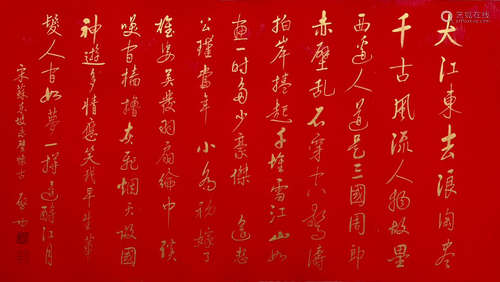 大江東去浪淘盡
千古風流人物故壘
西邊人道是三國周郎
赤壁乱石穿空驚濤
拍岸捲起千堆雪江山如
畫一時多少豪傑 遙想
公瑾當年 小喬初嫁了
雄姿英發羽扇綸巾 談
笑間檣櫓灰飛烟滅故國
神遊多情應笑我早生華
髮人間如夢一樽還酹江月
宋蘇東坡赤壁懷古